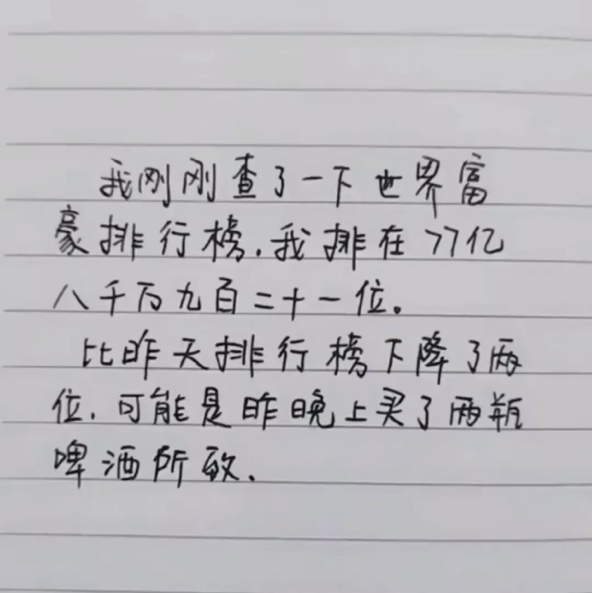 我刚刚查了一下世界富
豪排行榜,我排在77亿
八千万九百二十一位。
比昨天排行榜下降了两
位,可能是昨晚上买了两瓶
啤酒所致.